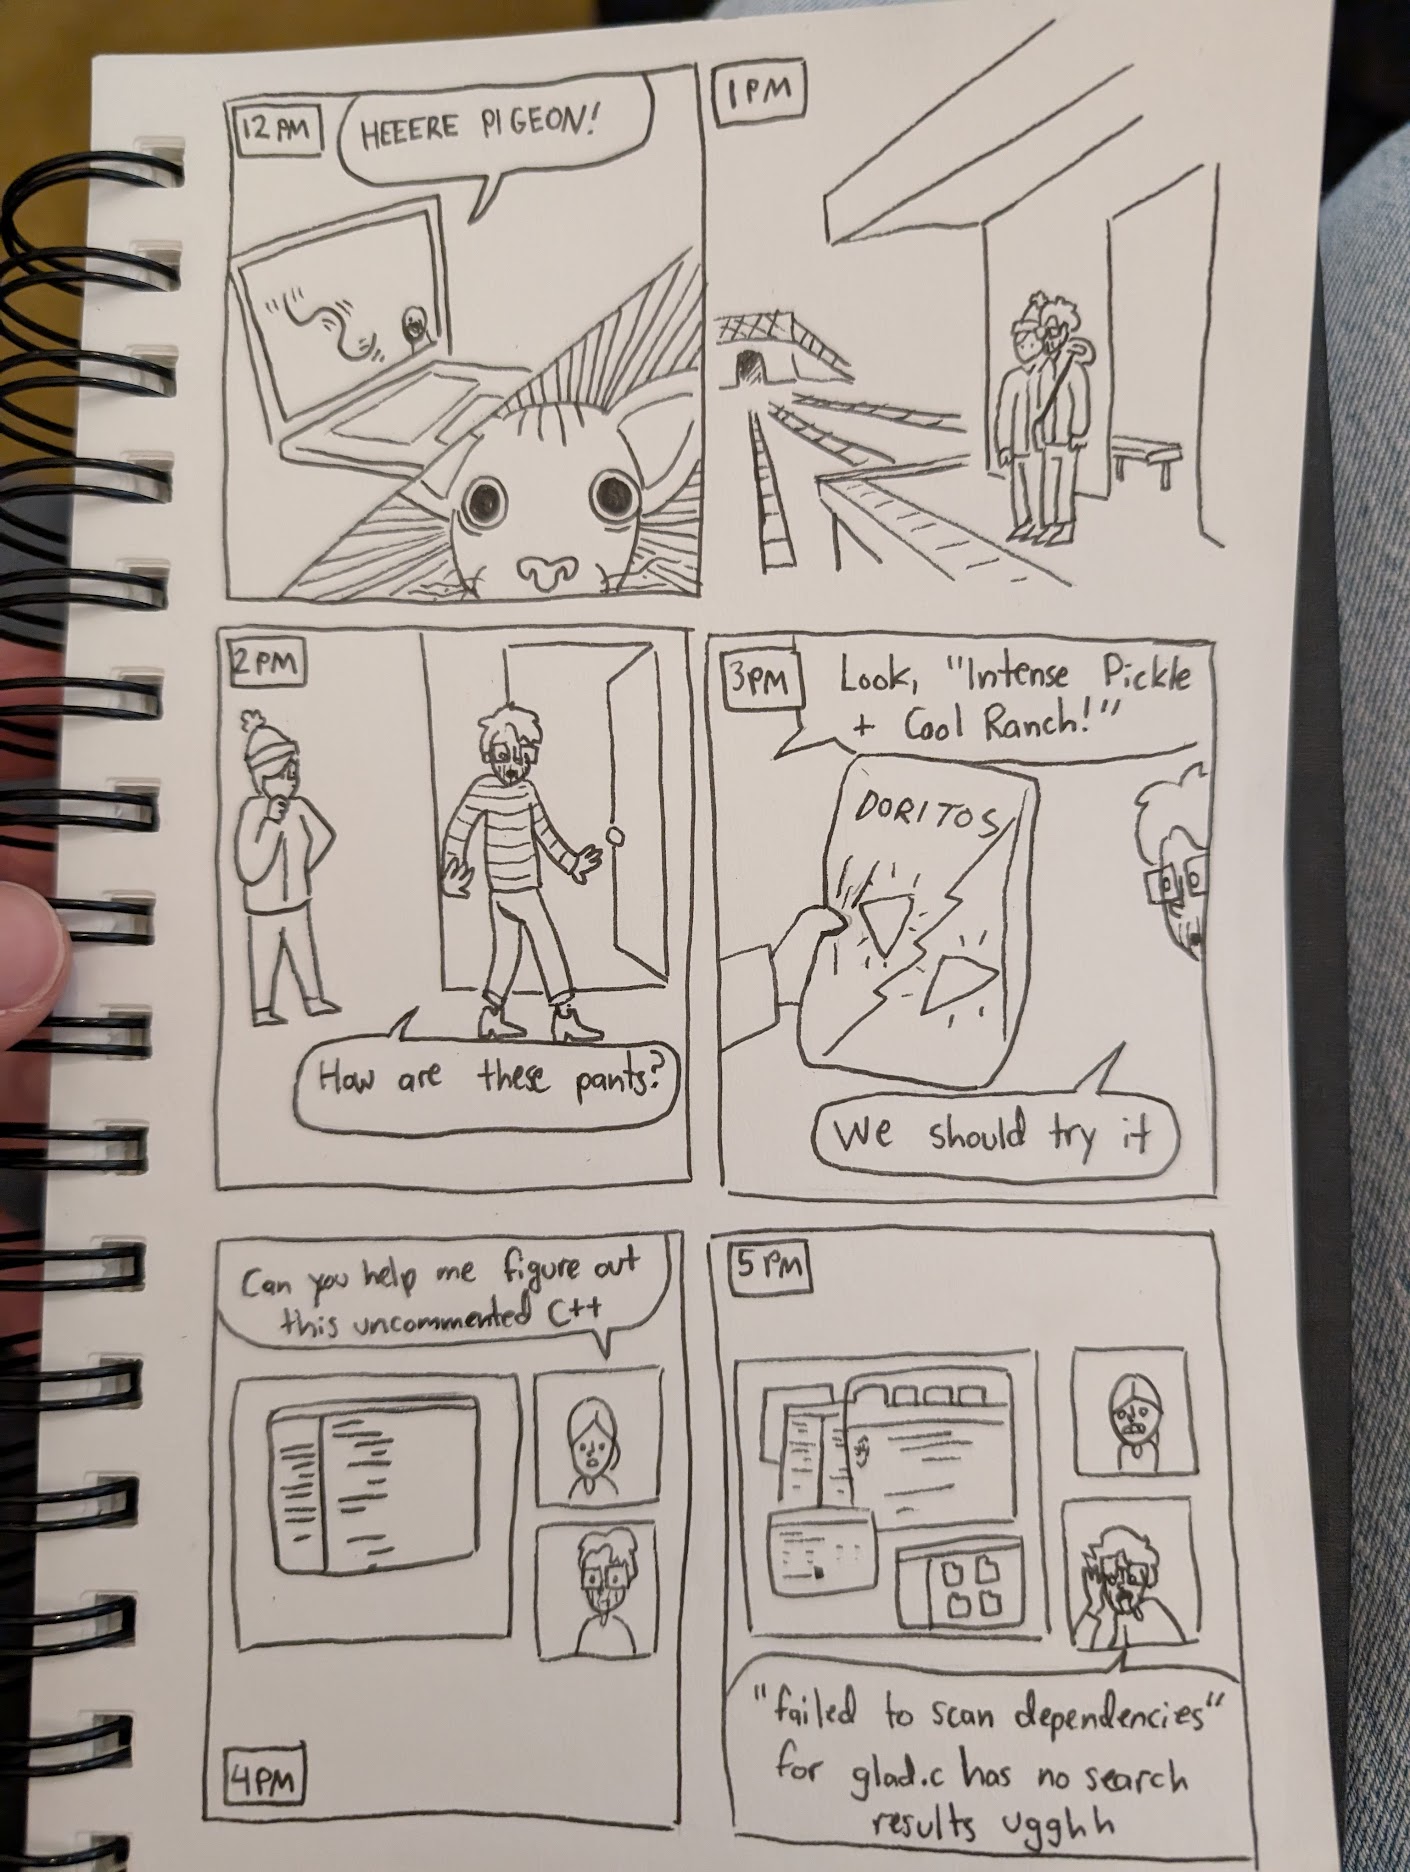 12 PM
HEEERE PIGEON!
1 PM
2 PM
How are these pants?
3PM
Look, "Intense Pickle
+ Cool Ranch!"
DORITOS
We should try it
Can you help me figure out
this uncommented C++
4PM
5 PM
"failed to scan dependencies"
for glad.c has no search
results ugghh